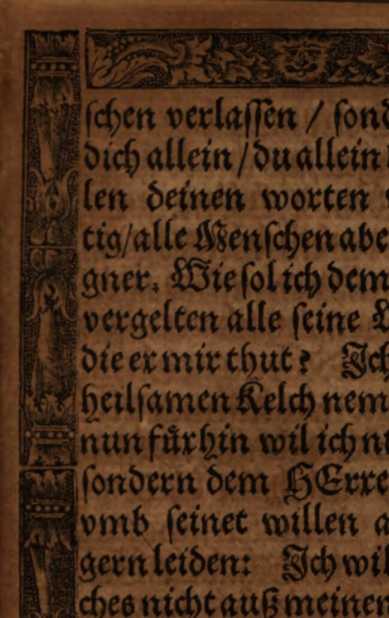 schen verlassen / sond
dich allein / du allein
len deinen worten
tig/alle Menschen abe
gner. Wie sol ich dem
vergelten alle seine
die er mir thut? Ich
heilsamen Kelch nem
nun fürhin wil ich n
sondern dem HErre
vmb seinet willen a
gern leiden: Ich wil
ches nicht auß meinen